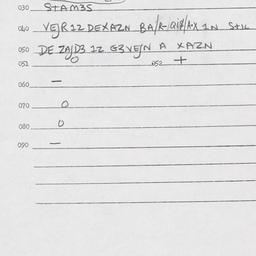 030 STAM3S
040 VEJR 12 DEXAZN BA/R-QIB/A-X 1N StIL
050 DE ZAJD3 12 G3VEJN A XAZN
051 052 +
060 —
070 O
080 O
090 —